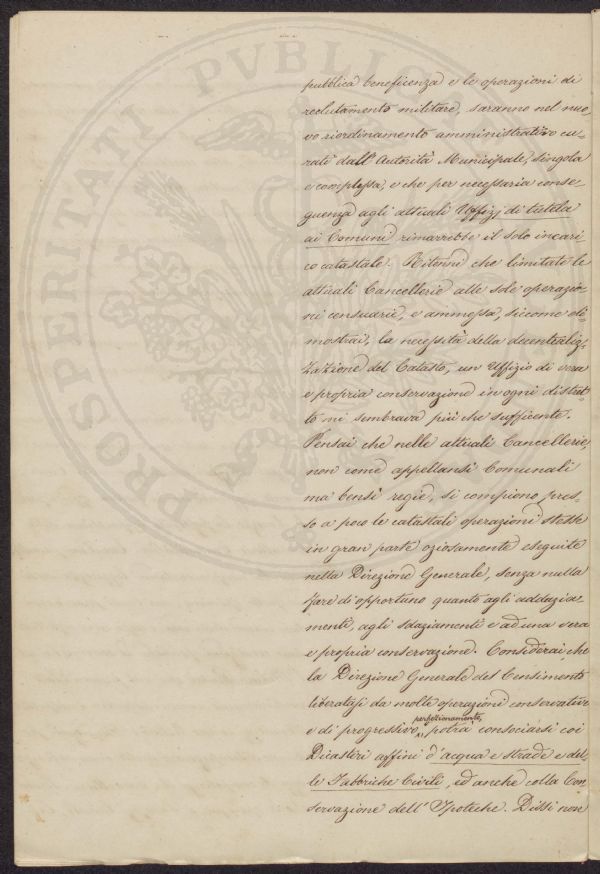 PROSPERITATI PVBLIC
pubblica beneficenza e le operazioni di
reclutamento militare, saranno nel nuo-
vo riordinamento amministrativo cu-
rati dall'Autorità Municipale, singola
e complessa, e che per necessaria conse-
guenza agli attuali Uffizj di tutela
ai Comuni rimarrebbe il solo incari
co catastale. Ritenni che limitate le
attuali Cancellerie alle sole operazio-
ni censuarie, e ammessa, siccome di-
mostrai, la necessità della decentraliz-
zazione del Catasto, un Uffizio di vera
e propria conservazione in ogni distret-
to mi sembrava più che sufficente.
Pensai che nelle attuali Cancellerie,
non come appellansi Comunali
ma bensì regie, si compiono pres-
so a poco le catastali operazioni stesse
in gran parte oziosamente eseguite
nella Direzione Generale, senza nulla
fare di opportuno quanto agli addazia-
menti, agli sdaziamenti e ad una vera
e propria conservazione. Considerai, che
la Direzione Generale del Censimento
liberatasi da molte operazioni conservative
e di progressivo perfezionamento, potrà consociarsi coi
Dicasteri affini d'acqua e strade e del-
le Fabbriche Civili, ed anche colla Con
servazione dell'Ipoteche. Dissi non